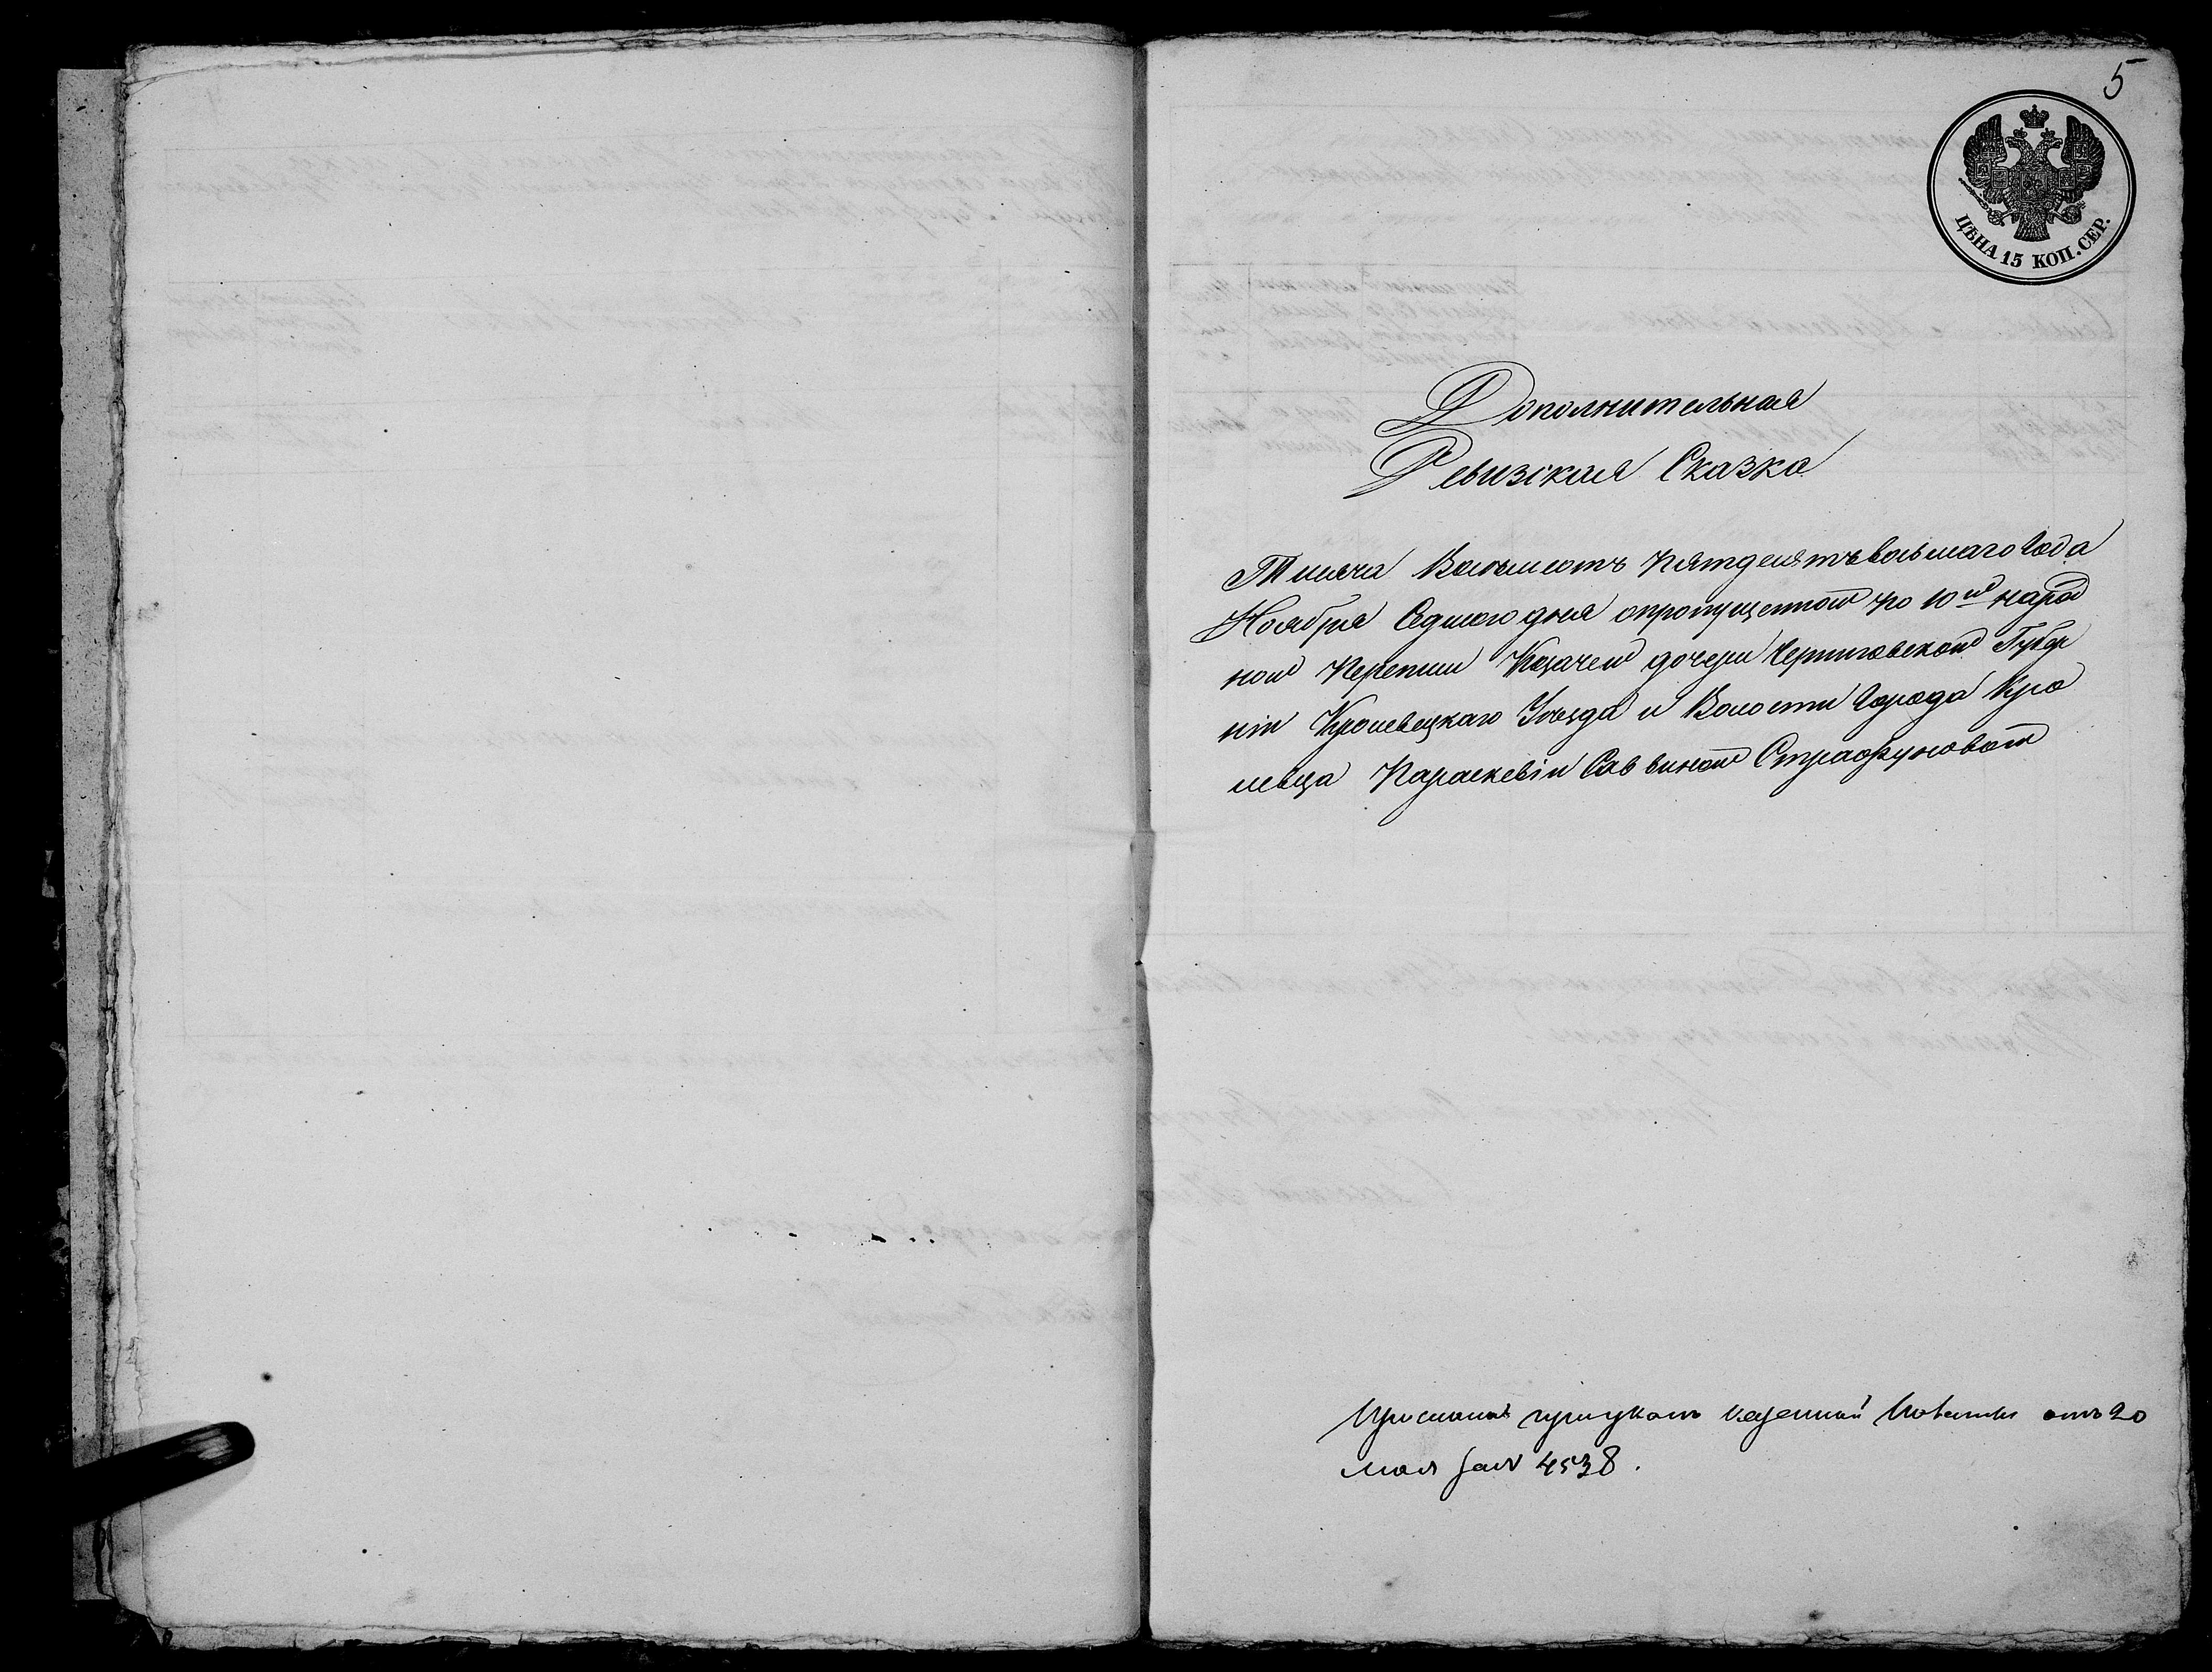 5
ЦѢНА 15 КОП. СЕР.
Дополнительная
Ревизская Сказка
Тисяча Восемсотъ пятдесятъ восьмаго Года
Ноября Седмаго дня опропущенной по 10й народ
ной Переписи Козачей дочери Черниговской Губер
ніи Кролевецкаго Уѣзда и Волости Города Кро
левца Параскевіи Саввиной Страофуновой
при указѣ Казенной Палаты отъ 20
мая за № 4538.